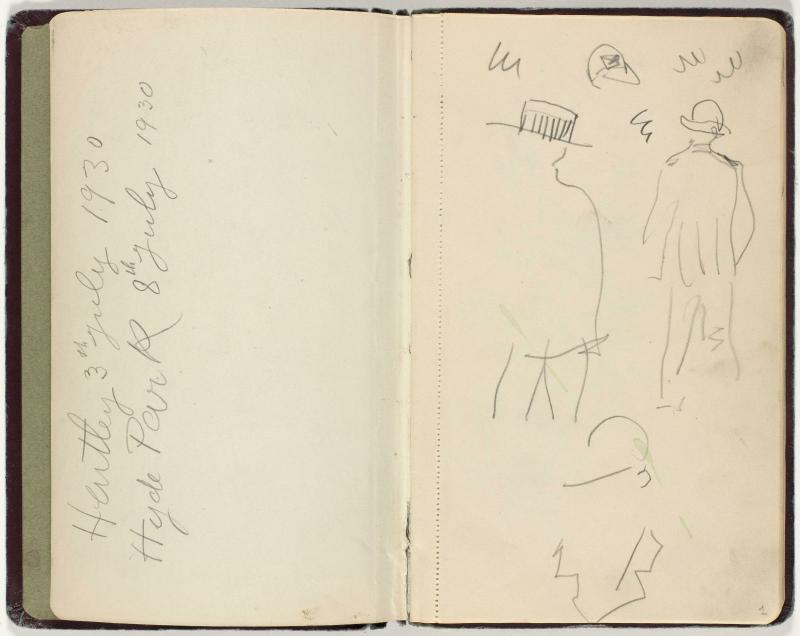 Hentley 3th july 1930
Hyde Park 8th july 1930
1